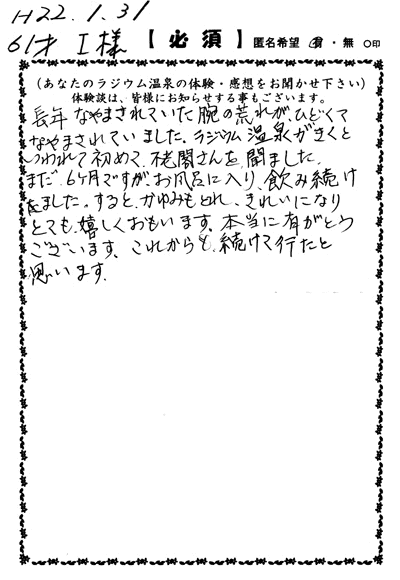 H22.1.31
61才 I様 【必須】 匿名希望 有・無 ○印
(あなたのラジウム温泉の体験・感想をお聞かせ下さい)
体験談は、皆様にお知らせする事もございます。
長年 なやまされていた腕の荒れが、ひどくて
なやまされていました。ラジウム温泉がきくと
いわれて初めて、 さんを、聞ました。
まだ、6ヶ月ですが、お風呂に入り、飲み続け
ました。すると、かゆみもとれ、きれいになり
とても、嬉しくおもいます。本当に有がとう
ございます。これからも、続けて行たと
思います。